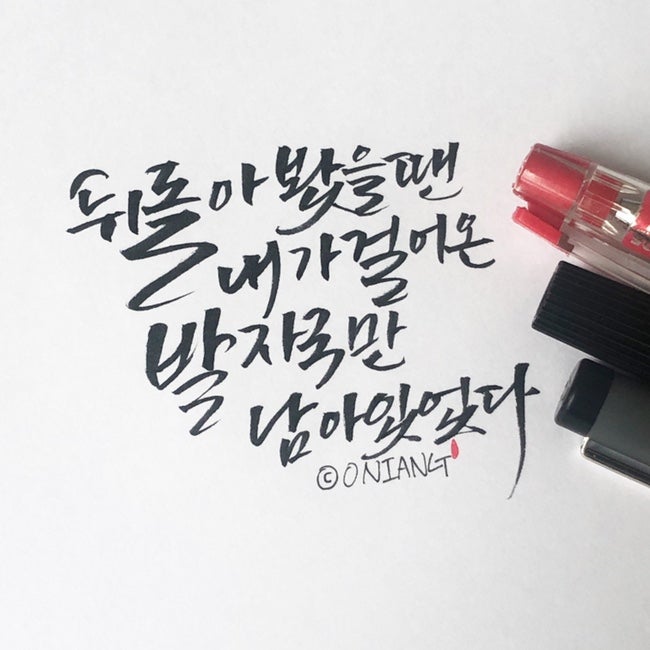 뒤돌아 봤을땐
내가 걸어온
발자국만
남아있었다
ⓒONIANGT